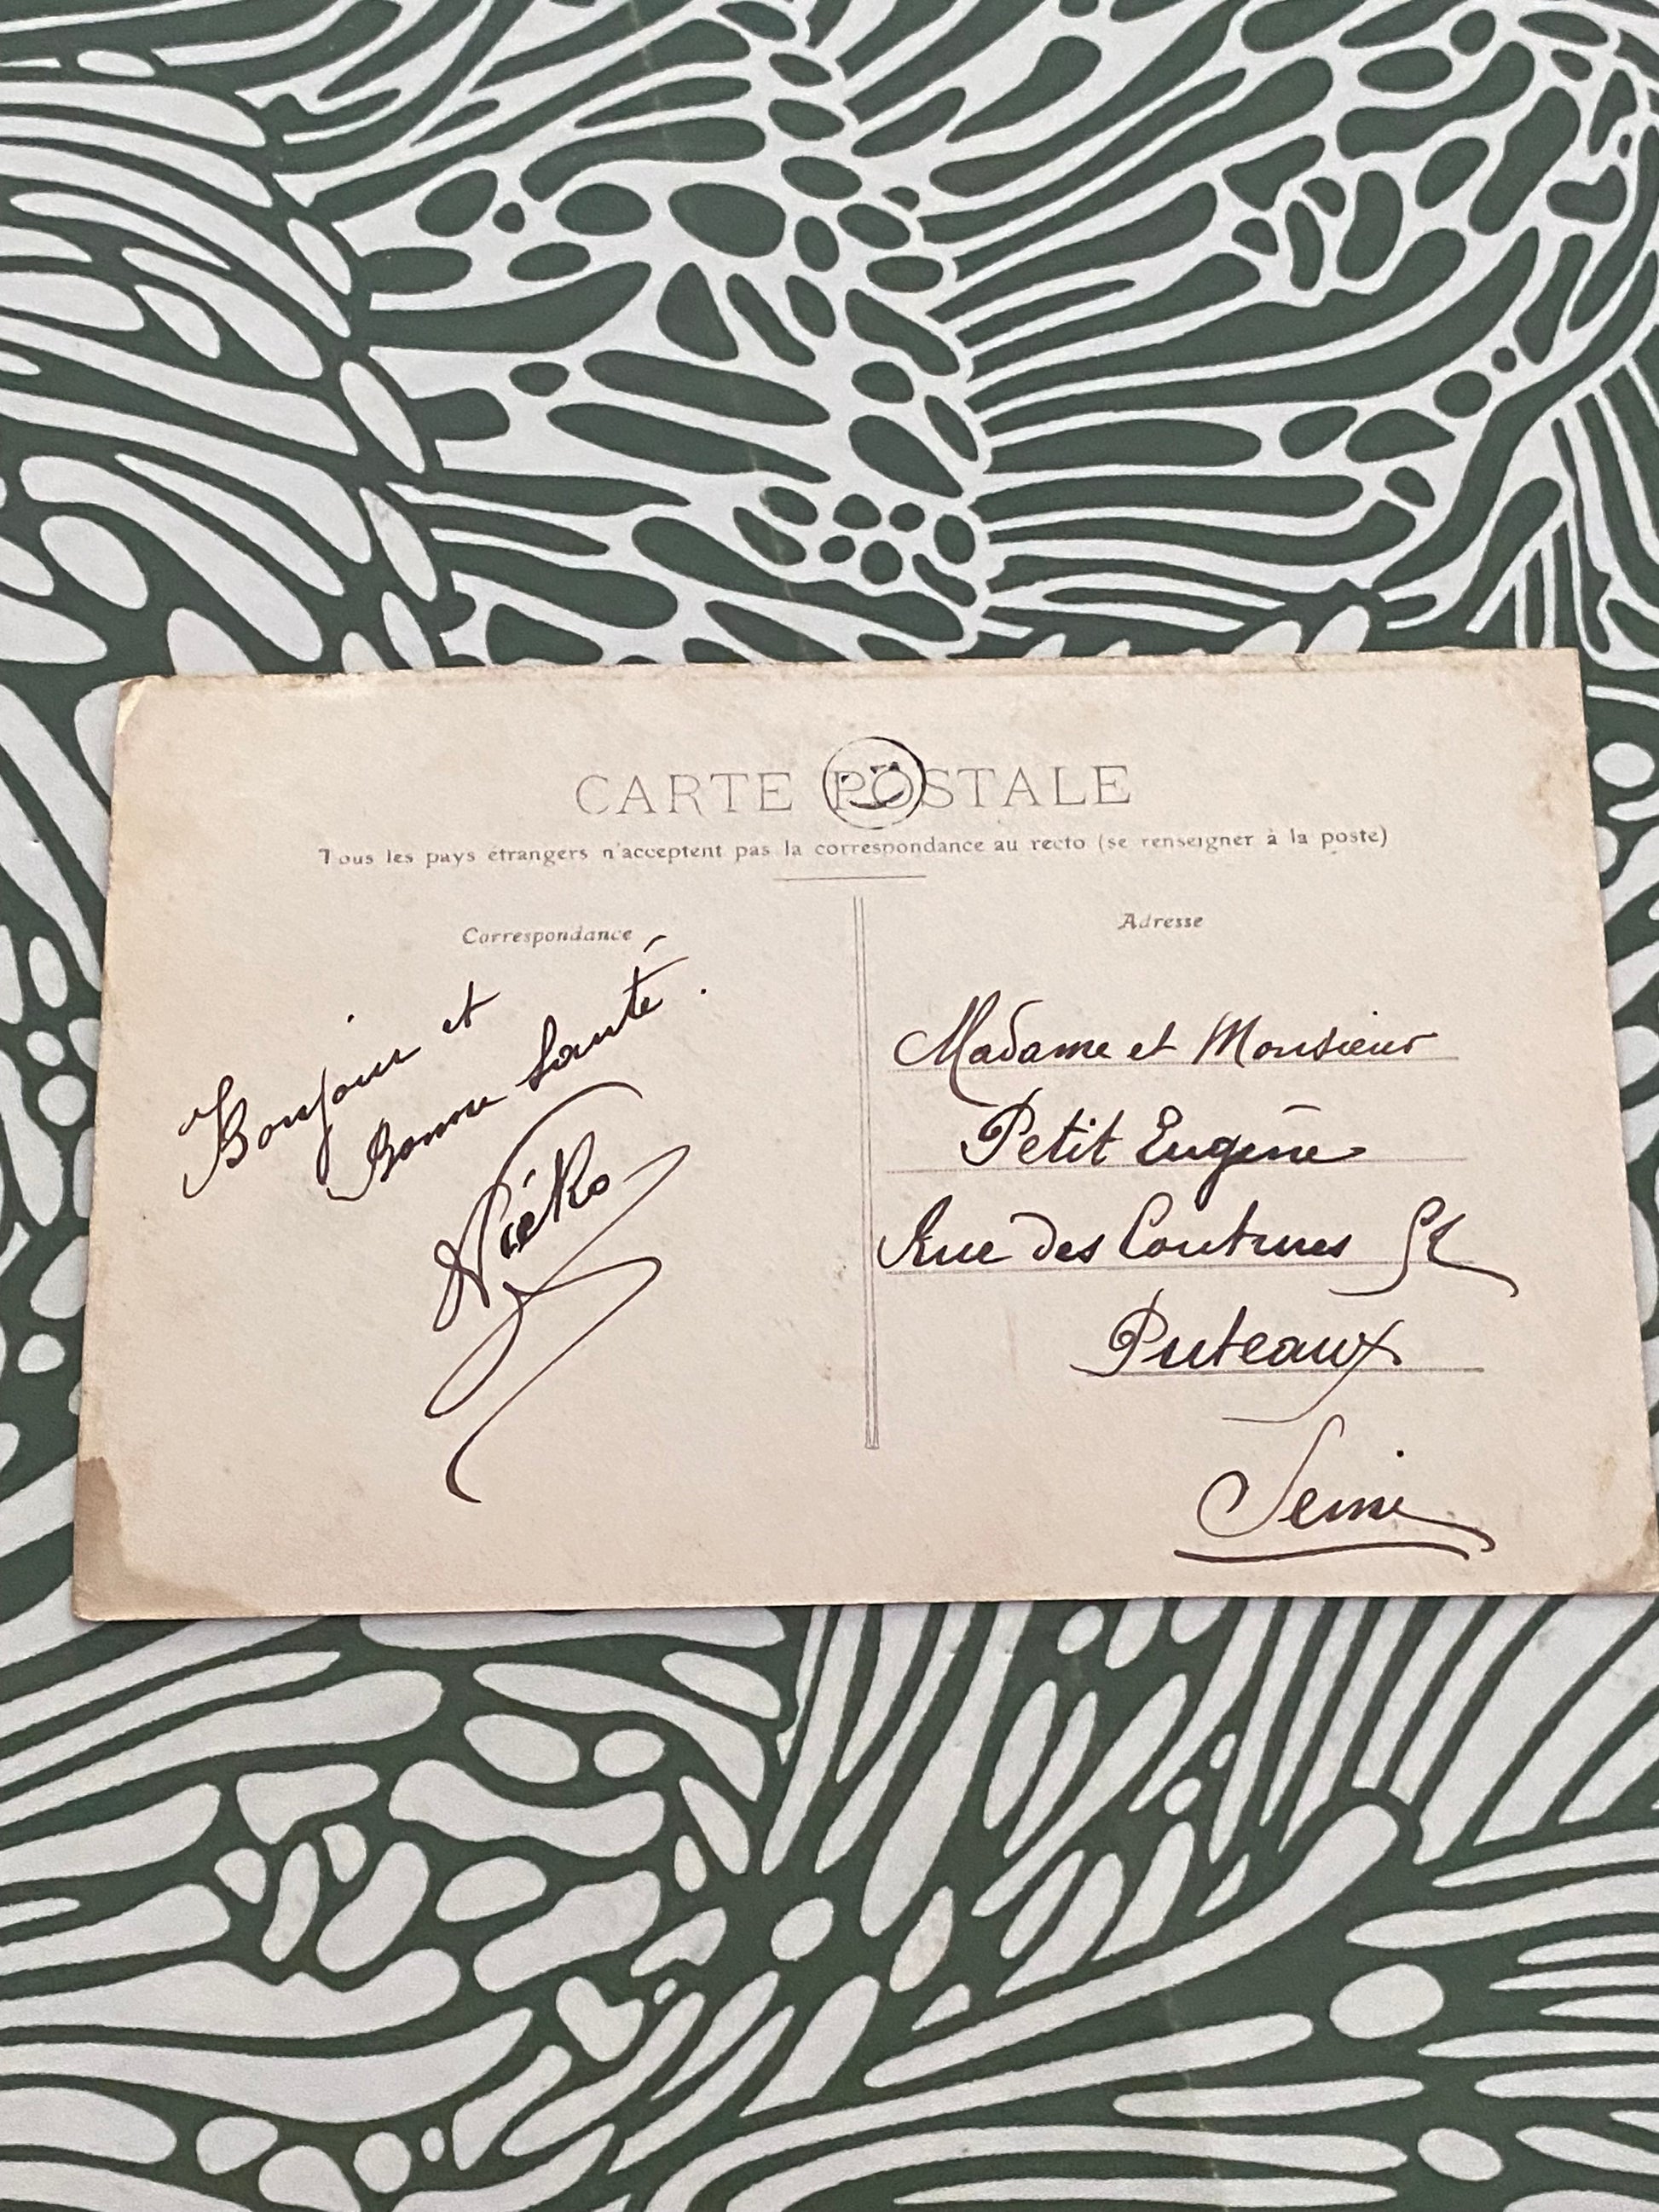 CARTE POSTALE
Tous les pays étrangers n'acceptent pas la correspondance au recto (se renseigner à la poste)
Correspondance
Bonjour et
Bonne Santé.
Adresse
Madame et Monsieur
Petit Eugène
Rue des
Puteaux
Seine